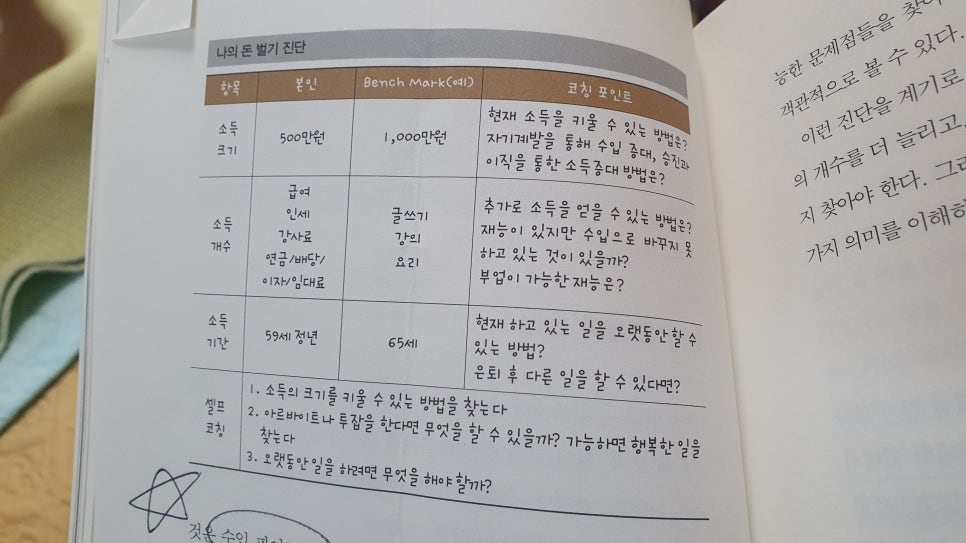 나의 돈 벌기 진단
항목 본인 Bench Mark(예) 코칭 포인트
소득
크기
500만원
1,000만원
현재 소득을 키울 수 있는 방법은?
자기계발을 통해 수입 증대, 승진과
이직을 통한 소득증대 방법은?
소득
개수
급여
인세
강사료
연금/배당/
이자/임대료
글쓰기
강의
요리
추가로 소득을 얻을 수 있는 방법은?
재능이 있지만 수입으로 바꾸지 못
하고 있는 것이 있을까?
부업이 가능한 재능은?
소득
기간
59세 정년
65세
현재 하고 있는 일을 오랫동안 할 수
있는 방법?
은퇴 후 다른 일을 할 수 있다면?
셀프
코칭
1. 소득의 크기를 키울 수 있는 방법을 찾는다
2. 아르바이트나 투잡을 한다면 무엇을 할 수 있을까? 가능하면 행복한 일을
찾는다
3. 오랫동안 일을 하려면 무엇을 해야 할까?
것은 수입
능한 문제점들을 찾아
객관적으로 볼 수 있다.
이런 진단을 계기로
의 개수를 더 늘리고,
지 찾아야 한다.
가지 의미를